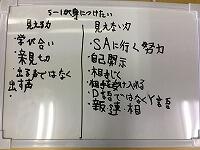 S-1が身につけたい
見える力
・学び合い
・親切
・出る声ではなく
出す声
見えない力
・SAに行く努力
・自己開示
・相手を受け入れる
・D語ではなくY語
・報連相